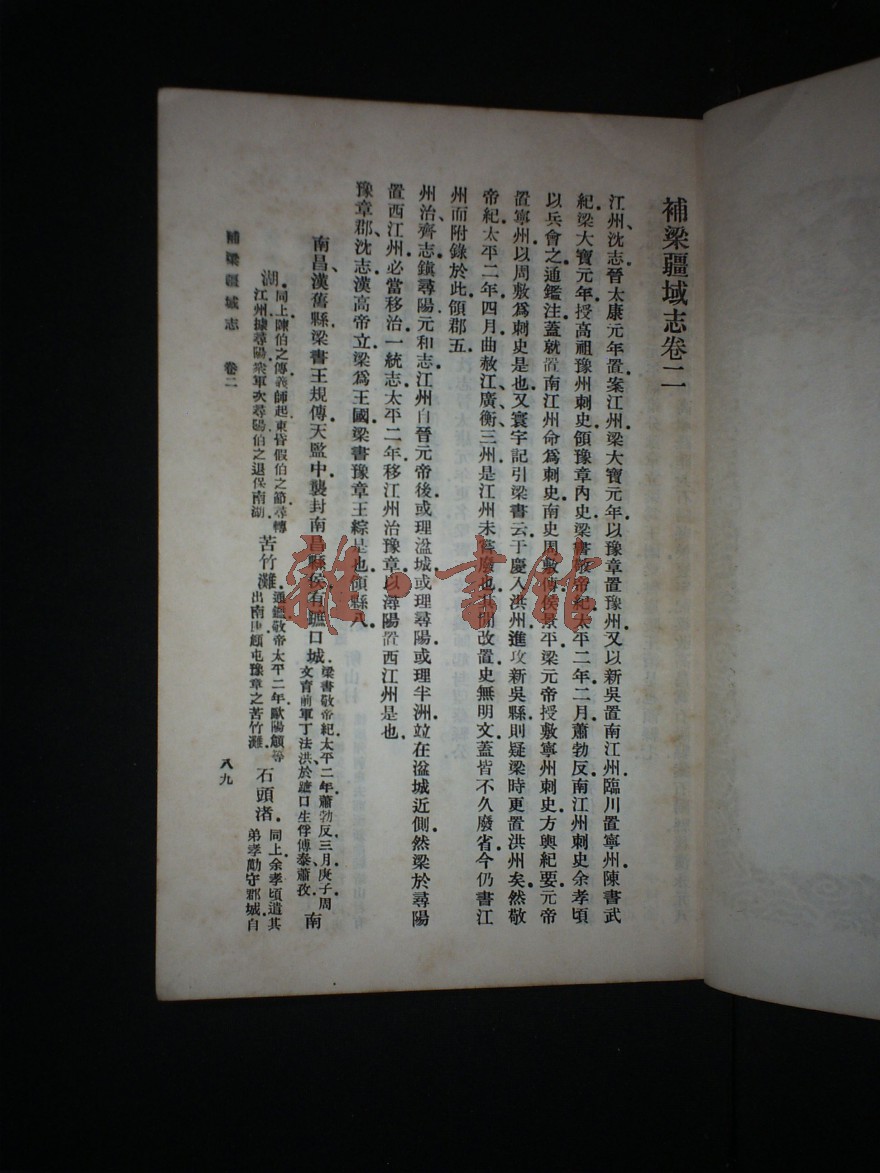 補梁疆域志卷二
江州沈志晉太康元年置案江州梁大寶元年以豫章置豫州又以新吳置南江州臨川置寧州陳書武
紀梁大寶元年授高祖豫州刺史領豫章內史梁書敬帝紀太平二年二月蕭勃反南江州刺史余孝頃
以兵會之通鑑注蓋就置南江州命爲刺史南史周敷傳侯景平梁元帝授敷寧州刺史方輿紀要元帝
置寧州以周敷爲刺史是也又寰宇記引梁書云于慶入洪州進攻新吳縣則疑梁時更置洪州矣然敬
帝紀太平二年四月曲赦江廣衡三州是江州未嘗廢也其間改置史無明文蓋皆不久廢省今仍書江
州而附錄於此領郡五
州治齊志鎭尋陽元和志江州自晉元帝後或理湓城或理尋陽或理半洲竝在湓城近側然梁於尋陽
置西江州必當移治一統志太平二年移江州治豫章以潯陽置西江州是也
豫章郡沈志漢高帝立梁爲王國梁書豫章王綜是也領縣八
南昌漢舊縣梁書王規傳天監中襲封南昌縣侯有蹠口城梁書敬帝紀太平二年蕭勃反三月庚子周文育前軍丁法洪於蹠口生俘傅泰蕭孜南
湖同上陳伯之傳義師起東昏假伯之節尋轉江州據尋陽衆軍次尋陽伯之退保南湖苦竹灘通鑑敬帝太平二年歐陽頠等出南康頠屯豫章之苦竹灘石頭渚同上余孝頃遣其弟孝勱守郡城自
補梁疆域志 卷二
八九
雜·書館